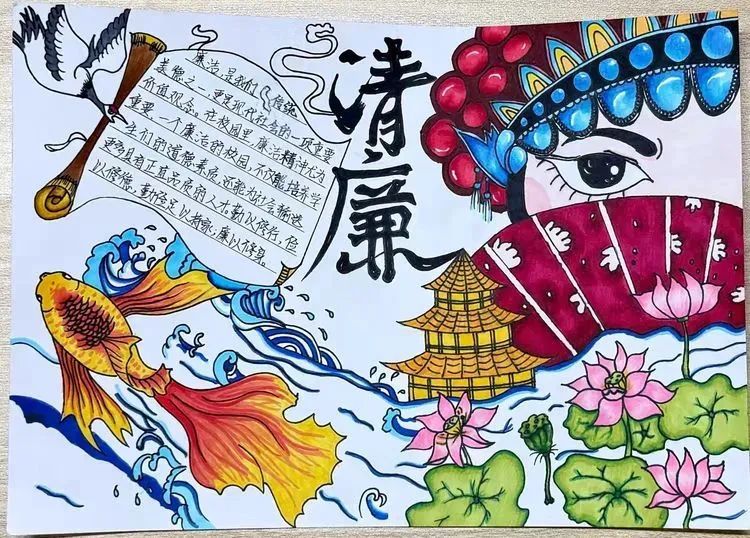 清廉
廉洁是我们传统
美德之一,更是现代社会的一项重要
价值观念。在校园里,廉洁精神尤为
重要。一个廉洁的校园,不仅能培养学
生们的道德素质,还能为社会输送
更多具有正直品质的人才。勤以修行,俭
以修德。勤俭足以兴家,廉以修身。